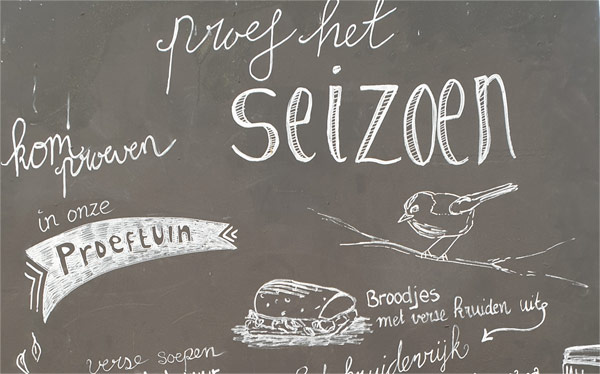 proef het
seizoen
kom
proeven
in onze
Proeftuin
Broodjes
met verse kruiden uit
verse soepen
kruidenrijk